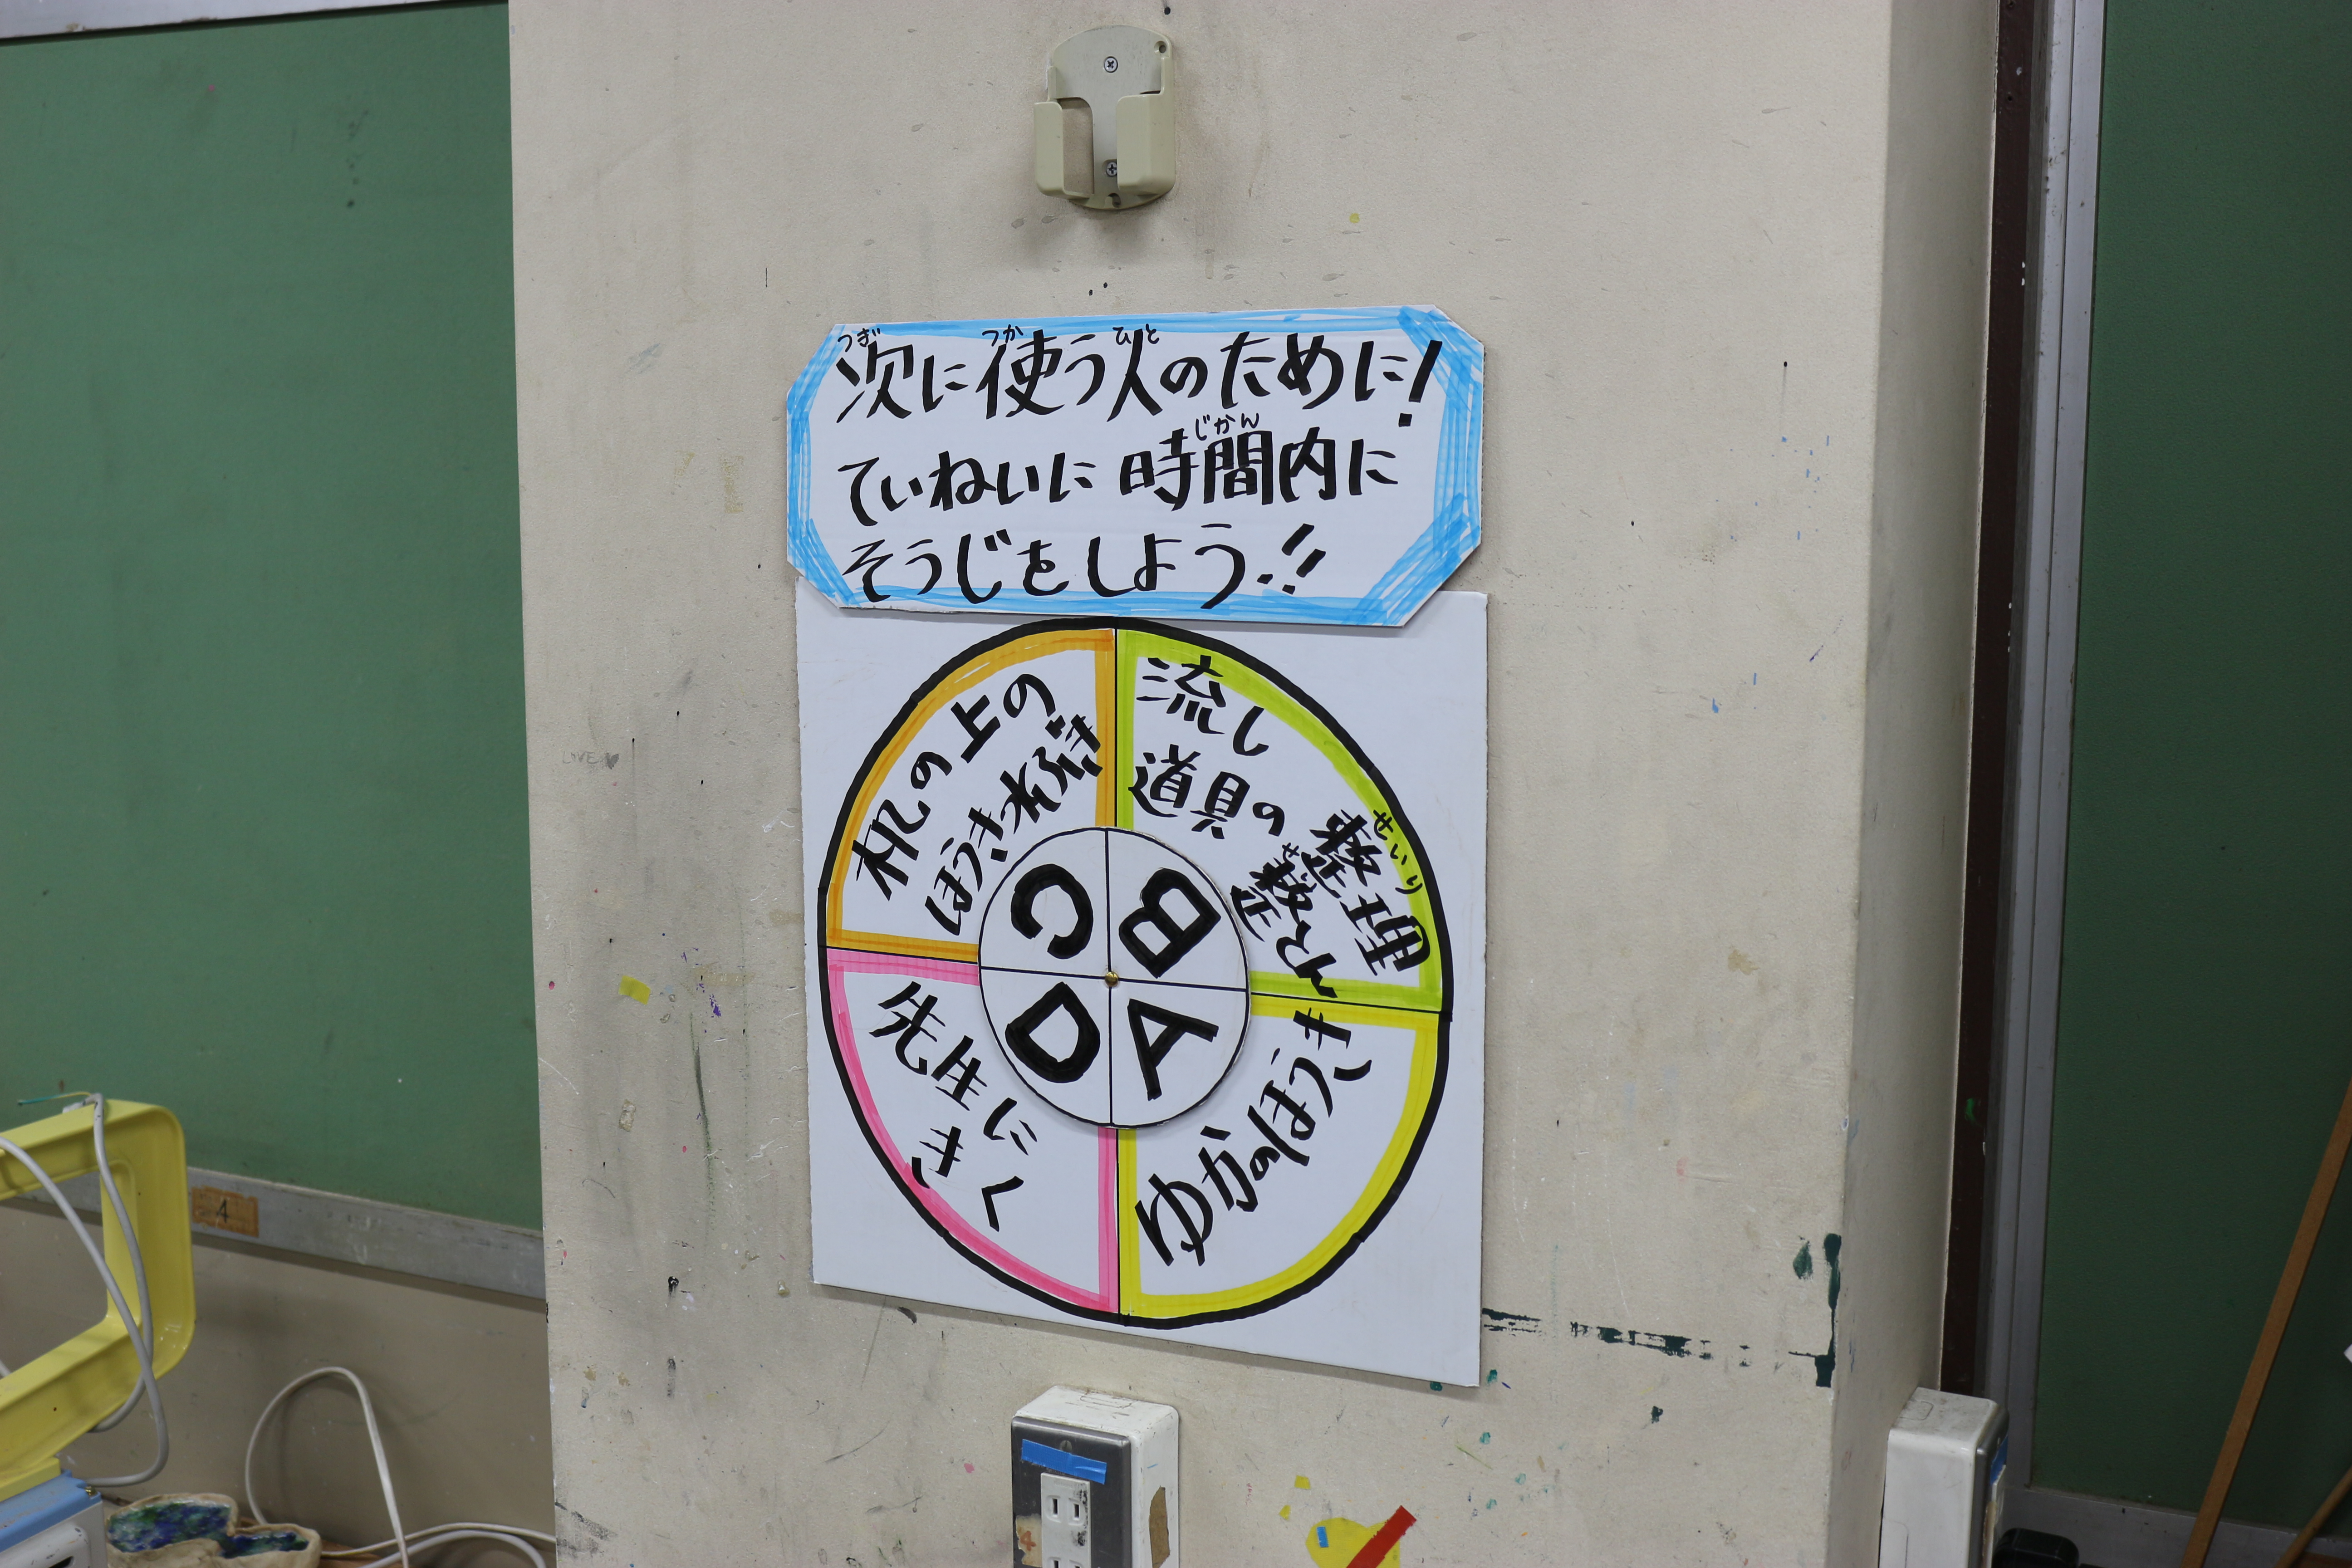 つぎ つか ひと
次に使う人のために!
じかん
ていねいに時間内に
そうじをしよう!!
机の上の
ほうき、水ぶき
流し
道具の
せいり
整理
せい
整とん
C
B
D
A
先生に
きく
ゆかのほうき
LOVE
4